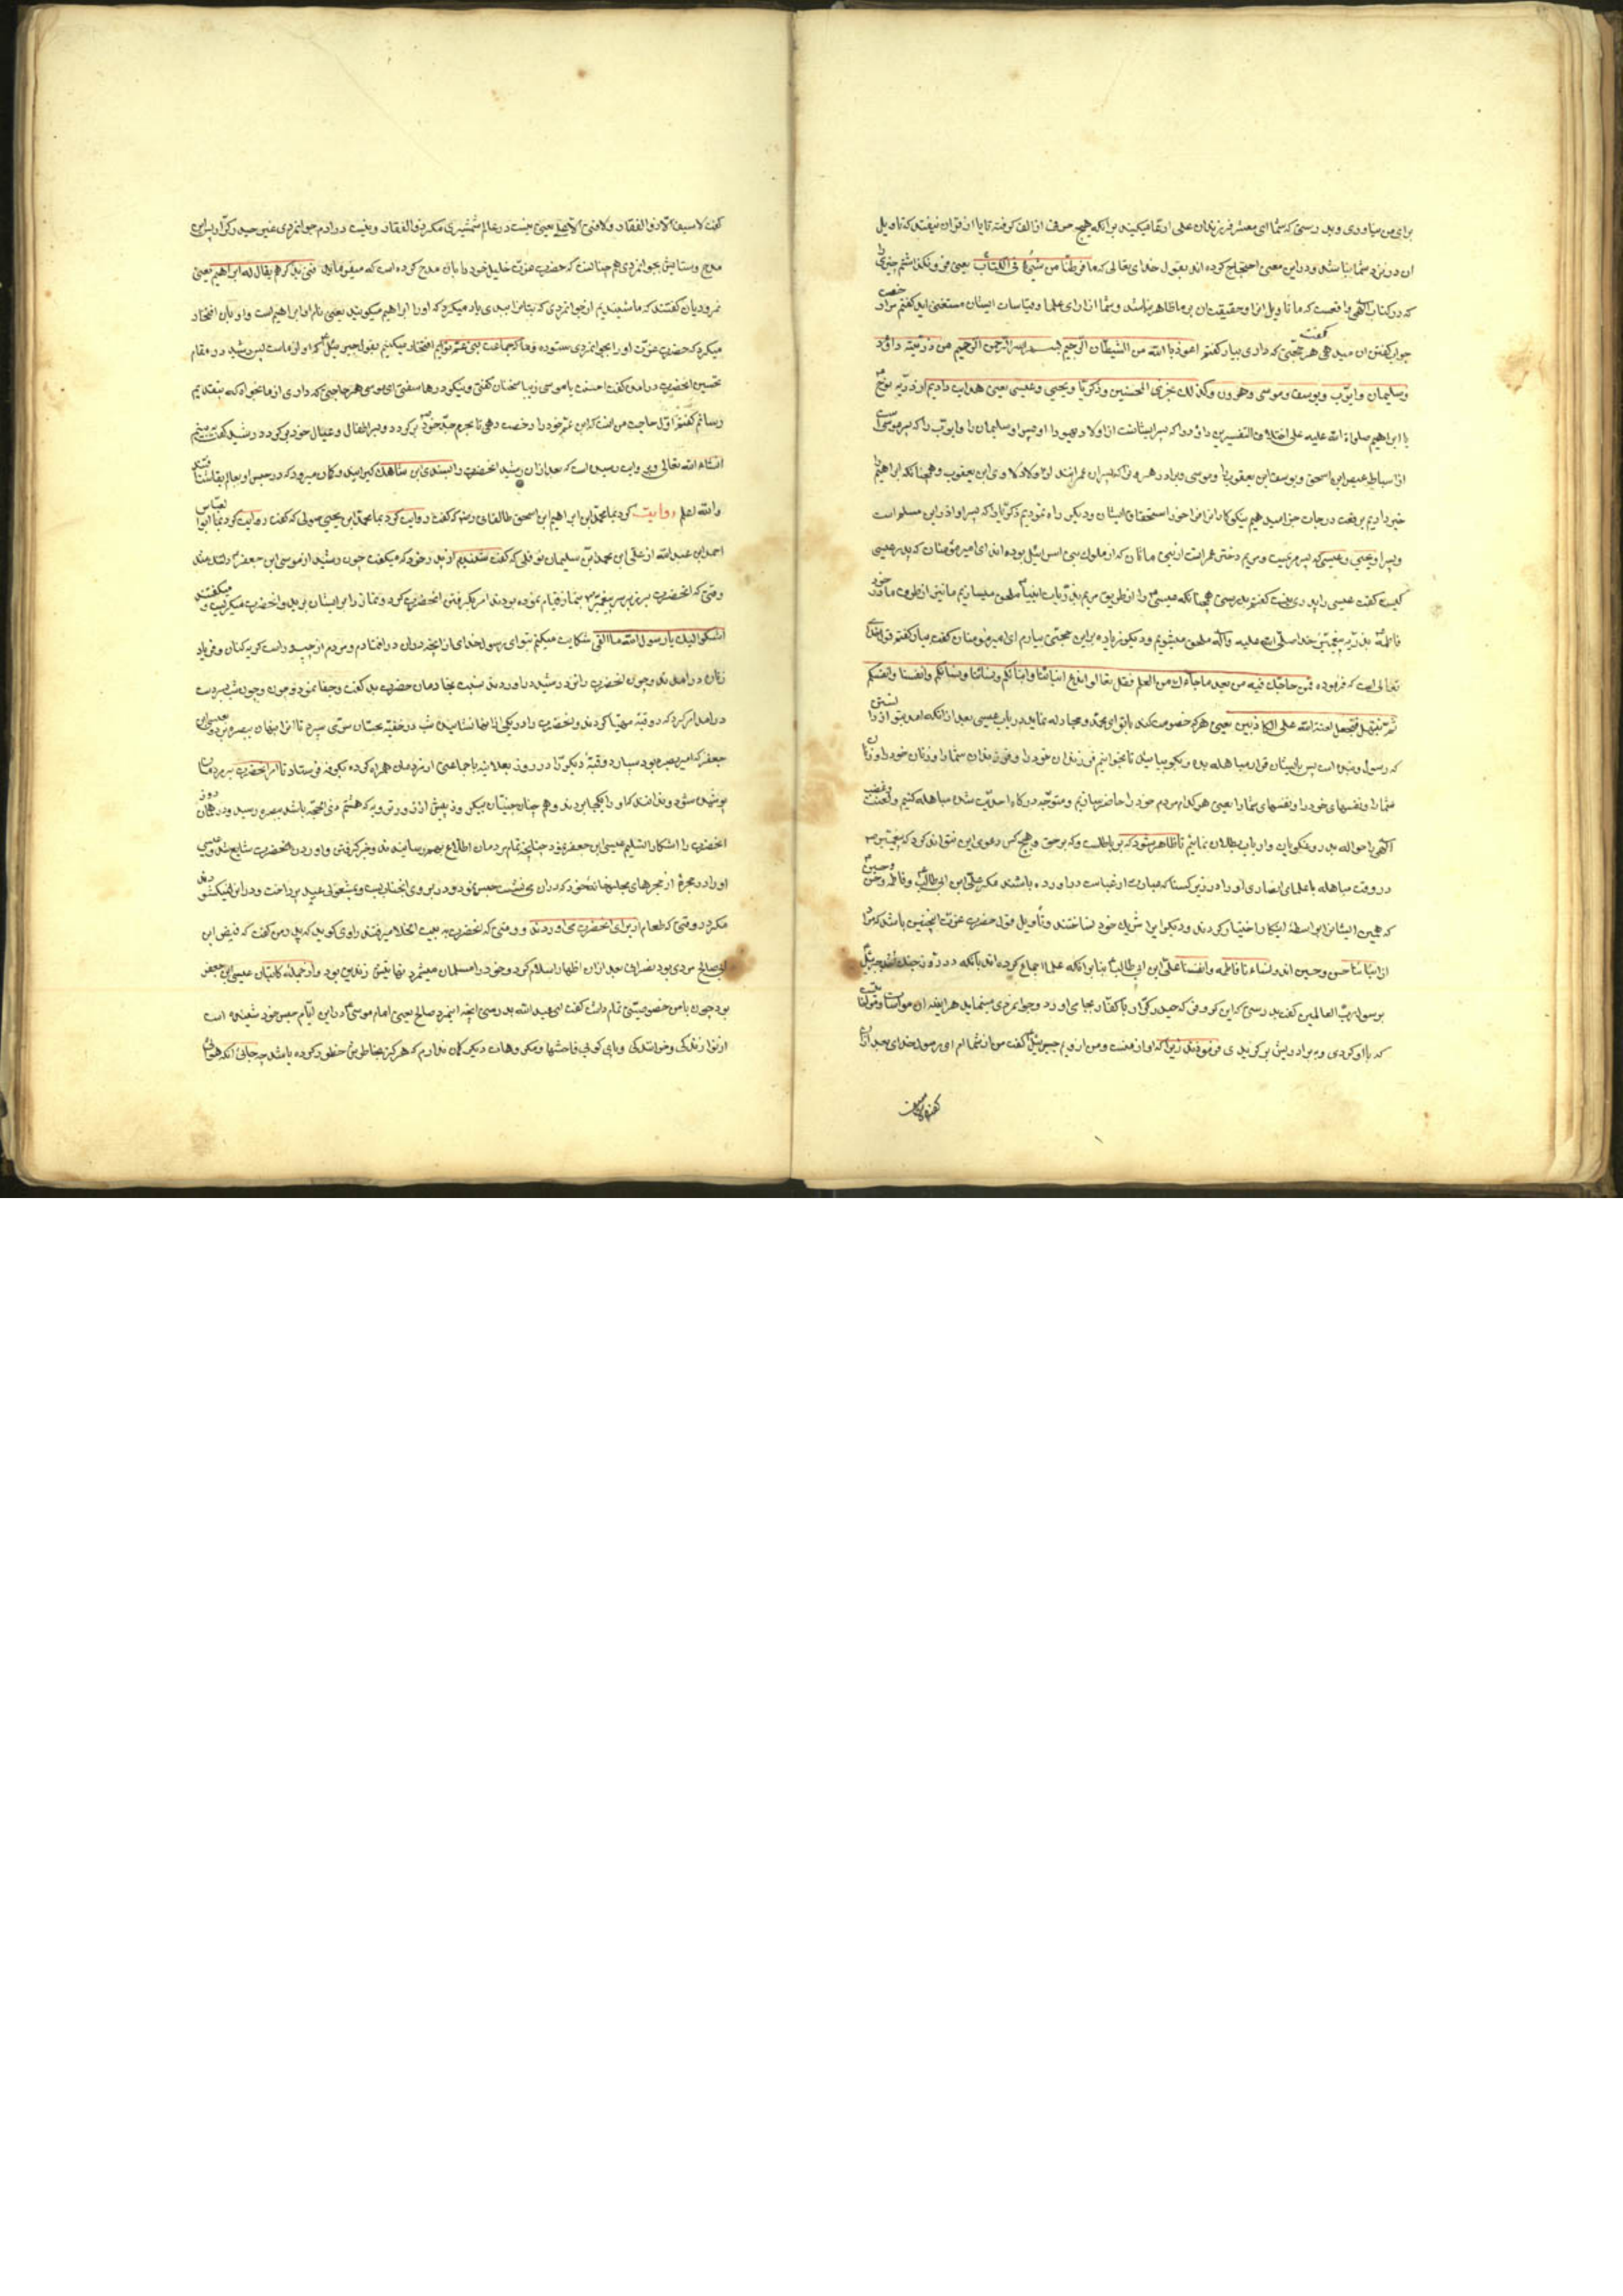 برای من میاوری و بدرستی که شما ای معشر فرزندان علی ادعا میکنید بر آنکه هیچ حرف از الف کرفته تا یا از قران نیفتد که تاویل
ان در نزد شما نباشد و در این معنی احتجاج کرده اند بقول خدای تعالی که ما فرطنا من شیء فی الکتاب یعنی
که در کتاب الهی واقعست که ما تاویل انرا و حقیقت ان بر ما ظاهر باشد و شما از رای علما و قیاسات ایشان مستغنی اید کفتم مرا در
جواب کفتن ان میدهی هر حجتی که داری بیار کفتم اعوذ بالله من الشیطان الرجیم بسم الله الرحمن الرحیم من ذریته داود
وسلیمان وایوب ویوسف وموسی وهرون وکذلک نجزی المحسنین وذکریا ویحیی وعیسی یعنی هدایت دادیم از ذریه نوح
یا ابراهیم صلواة الله علیه علی اختلاف التفسیرین داود را که پسر ایشانست از اولاد یهودا و پسر او سلیمان را و ایوب را که پسر موسی
از اسباط عیص ابن اسحق و یوسف ابن یعقوب را و موسی و برادر هرون که پسران عمرانند از اولاد لاوی ابن یعقوب و همچنانکه ابراهیم را
خبر دادیم برفعت درجات جزا میدهیم نیکوکارانرا فراخور استحقاق ایشان و دیکر راه نمودیم ذکریا را که پسر او اذر ابن مسلم است
و پسر او یحیی و عیسی که پسر مریمست و مریم دختر عمرانست از بنی ماثان که از ملوک بنی اسرائیل بوده اند ای امیر مؤمنان که پدر عیسی
کیست کفت عیسی را پدری نیست کفتم بدرستی همچنانکه عیسی را از طریق مریم بذریات انبیا ملحق میسازیم ما نیز از طرف مادر خود
فاطمه بذریه پیغمبر خدا صلی الله علیه وآله ملحق میشویم و دیکر زیاده بر این حجتی بیارم ای امیر مؤمنان کفت بیار کفتم قول خدای
تعالی است که فرموده فمن حاجک فیه من بعد ما جاءک من العلم فقل تعالوا ندع ابنائنا وابنائکم ونسائنا ونسائکم وانفسنا وانفسکم
ثم نبتهل فنجعل لعنة الله علی الکاذبین یعنی هر که خصومت کند با تو ای محمد و مجادله نماید در باب عیسی بعد از آنکه امد بتو از دانستن
که رسول و بنده است پس با ایشان قرار مباهله بده و بکو بیائید تا بخوانیم فرزندان خود را و فرزندان شما را و زنان خود را و زنان
شما را و نفسهای خود را و نفسهای شما را یعنی هر کدام مردم خود را حاضر سازیم و متوجه درکاه احدیت شده مباهله کنیم و لعنت
الهی را حواله بدروغکویان و ارباب بطلان نمائیم تا ظاهر شود که بر باطلست و که بر حق و هیچ کس دعوی این نتواند کرد که پیغمبر
در وقت مباهله با علمای نصاری او را در زیر کساء که عبارت از عباست دراورده باشند مکر علی ابن ابی طالب و فاطمه و حسن و حسین
که همین ایشانرا بواسطه اینکار اختیار کردند و دیکر ایرا شریک خود نساختند و تاویل قول حضرت عزت اینچنین باشد که مراد
از ابنائنا حسن وحسین اند ونساءنا فاطمه وانفسنا علی ابن ابی طالب بنا بر انکه علما اجماع کرده اند بانکه در روز جنک احد جبرئیل
برسول رب العالمین کفت بدرستی که این کر و فر که حیدر کرار با کفار بجا می اورد و جوانمردی مینماید هر اینه ان مواسات
که با او کردی و به برادریش برکزیدی فرمودند زیرا که او از منست و من از ویم جبرئیل کفت من از شماام ای رسول خدای بعد از ان
کفت لا سیف
کفت لا سیف الا ذو الفقار ولا فتی الا علی یعنی نیست در عالم شمشیری مکر ذو الفقار و نیست در ادم جوانمردی غیر حیدر کرار پس این
مدح و ستایش بجوانمردی هم چنانست که حضرت عزت خلیل خود را بان مدح کرده است که میفرماید فتی یذکرهم یقال له ابراهیم یعنی
نمرودیان کفتند که ما شنیدیم از جوانمردی که بتانرا ببدی یاد میکرد که او را ابراهیم میکویند یعنی نام او ابراهیم است و او بان افتخار
میکرد که حضرت عزت او را بجوانمردی ستوده و ما که جماعت بنی عم توایم افتخار میکنیم بقول جبرئیل که او از ماست پس رشید در مقام
تحسین انحضرت درامده کفت احسنت یا موسی زیبا سخنان کفتی و نیکو درها سفتی ای موسی هر حاجتی که داری از ما بخواه که به تقدیم
رسانم کفتم اول حاجت من انست که ابن عم خود را رخصت دهی تا بحرم جد خود برکردد و بر اطفال و عیال خود برکردد رشید کفت به بینم
انشاء الله تعالی وبروایت رسیده است که بعد از ان رشید انحضرت را بسندی ابن شاهک کیرانید و کمان میرود که در حبس او بعالم بقا شتافتند
والله اعلم روایت کرد بما محمد ابن ابراهیم ابن اسحق طالقانی که کفت روایت کرد بما محمد ابن یحیی صولی که کفت روایت کرد بما ابو العباس
احمد ابن عبد الله از علی ابن محمد ابن سلیمان نوفلی که کفت شنیدم از پدر خود که میکفت چون رشید از موسی ابن جعفر
وقتی که انحضرت بر سر پیغمبر بنماز قیام نموده بودند امر بکرفتن انحضرت کرد و نماز را بر ایشان برید و انحضرت میکریست و میکفتند
اشکو الیک یا رسول الله ما القی شکایت میکنم بتو ای رسول خدای از انچه در ان درافتادم و مردم از چپ و راست کریه کنان و فریاد
زنان درامدند و چون انحضرت را نزد رشید دراوردند نسبت بخادمان حضرت بد کفت و جفا نمود و چون شب بر سر دست
درامد امر کرد که دو قبه مهیا کردند و انحضرت را در یکی از انها نشانیده شب در خفیه بحسان سروی سپرد تا انرا پنهان ببصره برد و بعیسی ابن
جعفر که امیر بصره بود سپارد و قبه دیکر را در روز بعلانیه با جماعتی از مردمان همراه کرده بکوفه فرستاد تا امر انحضرت بر مردمان
پوشیده شود و ندانند که او را بکجا بردند و هم چنان حسان پیکر و ذ پیش از روز ترویه که هشتم ذی الحجه باشد ببصره رسید و در همان روز
انحضرت را اشکارا تسلیم عیسی ابن جعفر نمود چنانچه تمام مردمان اطلاع بهم رسانیدند و خبر کرفتن و اوردن انحضرت شایع شد و عیسی
او را در حجرهٔ از حجرهای مجلسخانه خود که در ان می نشست حبس نمود و در بر روی انجناب بست و بمشغولی عید پرداخت و در انرا نمیکشود
مکر در وقتی که طعام از برای انحضرت می اوردند و وقتی که انحضرت به بیت الخلا میرفتند راوی کوید که پدر من کفت که فیض ابن
ابی صالح مردی بود نصرانی بعد از ان اظهار اسلام کرد و خود را مسلمان میشمرد نهایتش زندیق بود و از جمله کاتبان عیسی ابن جعفر
بود چون با من خصوصیتی تمام داشت کفت ای عبد الله بدرستی انچه این مرد صالح یعنی امام موسی در این ایام حبس خود شنیده است
از نوازندکی و خوانندکی و پای کوبی و فاحشها و مکروهات دیکر کمان ندارم که هرکز بخاطرش خطور کرده باشد چه جای انکه